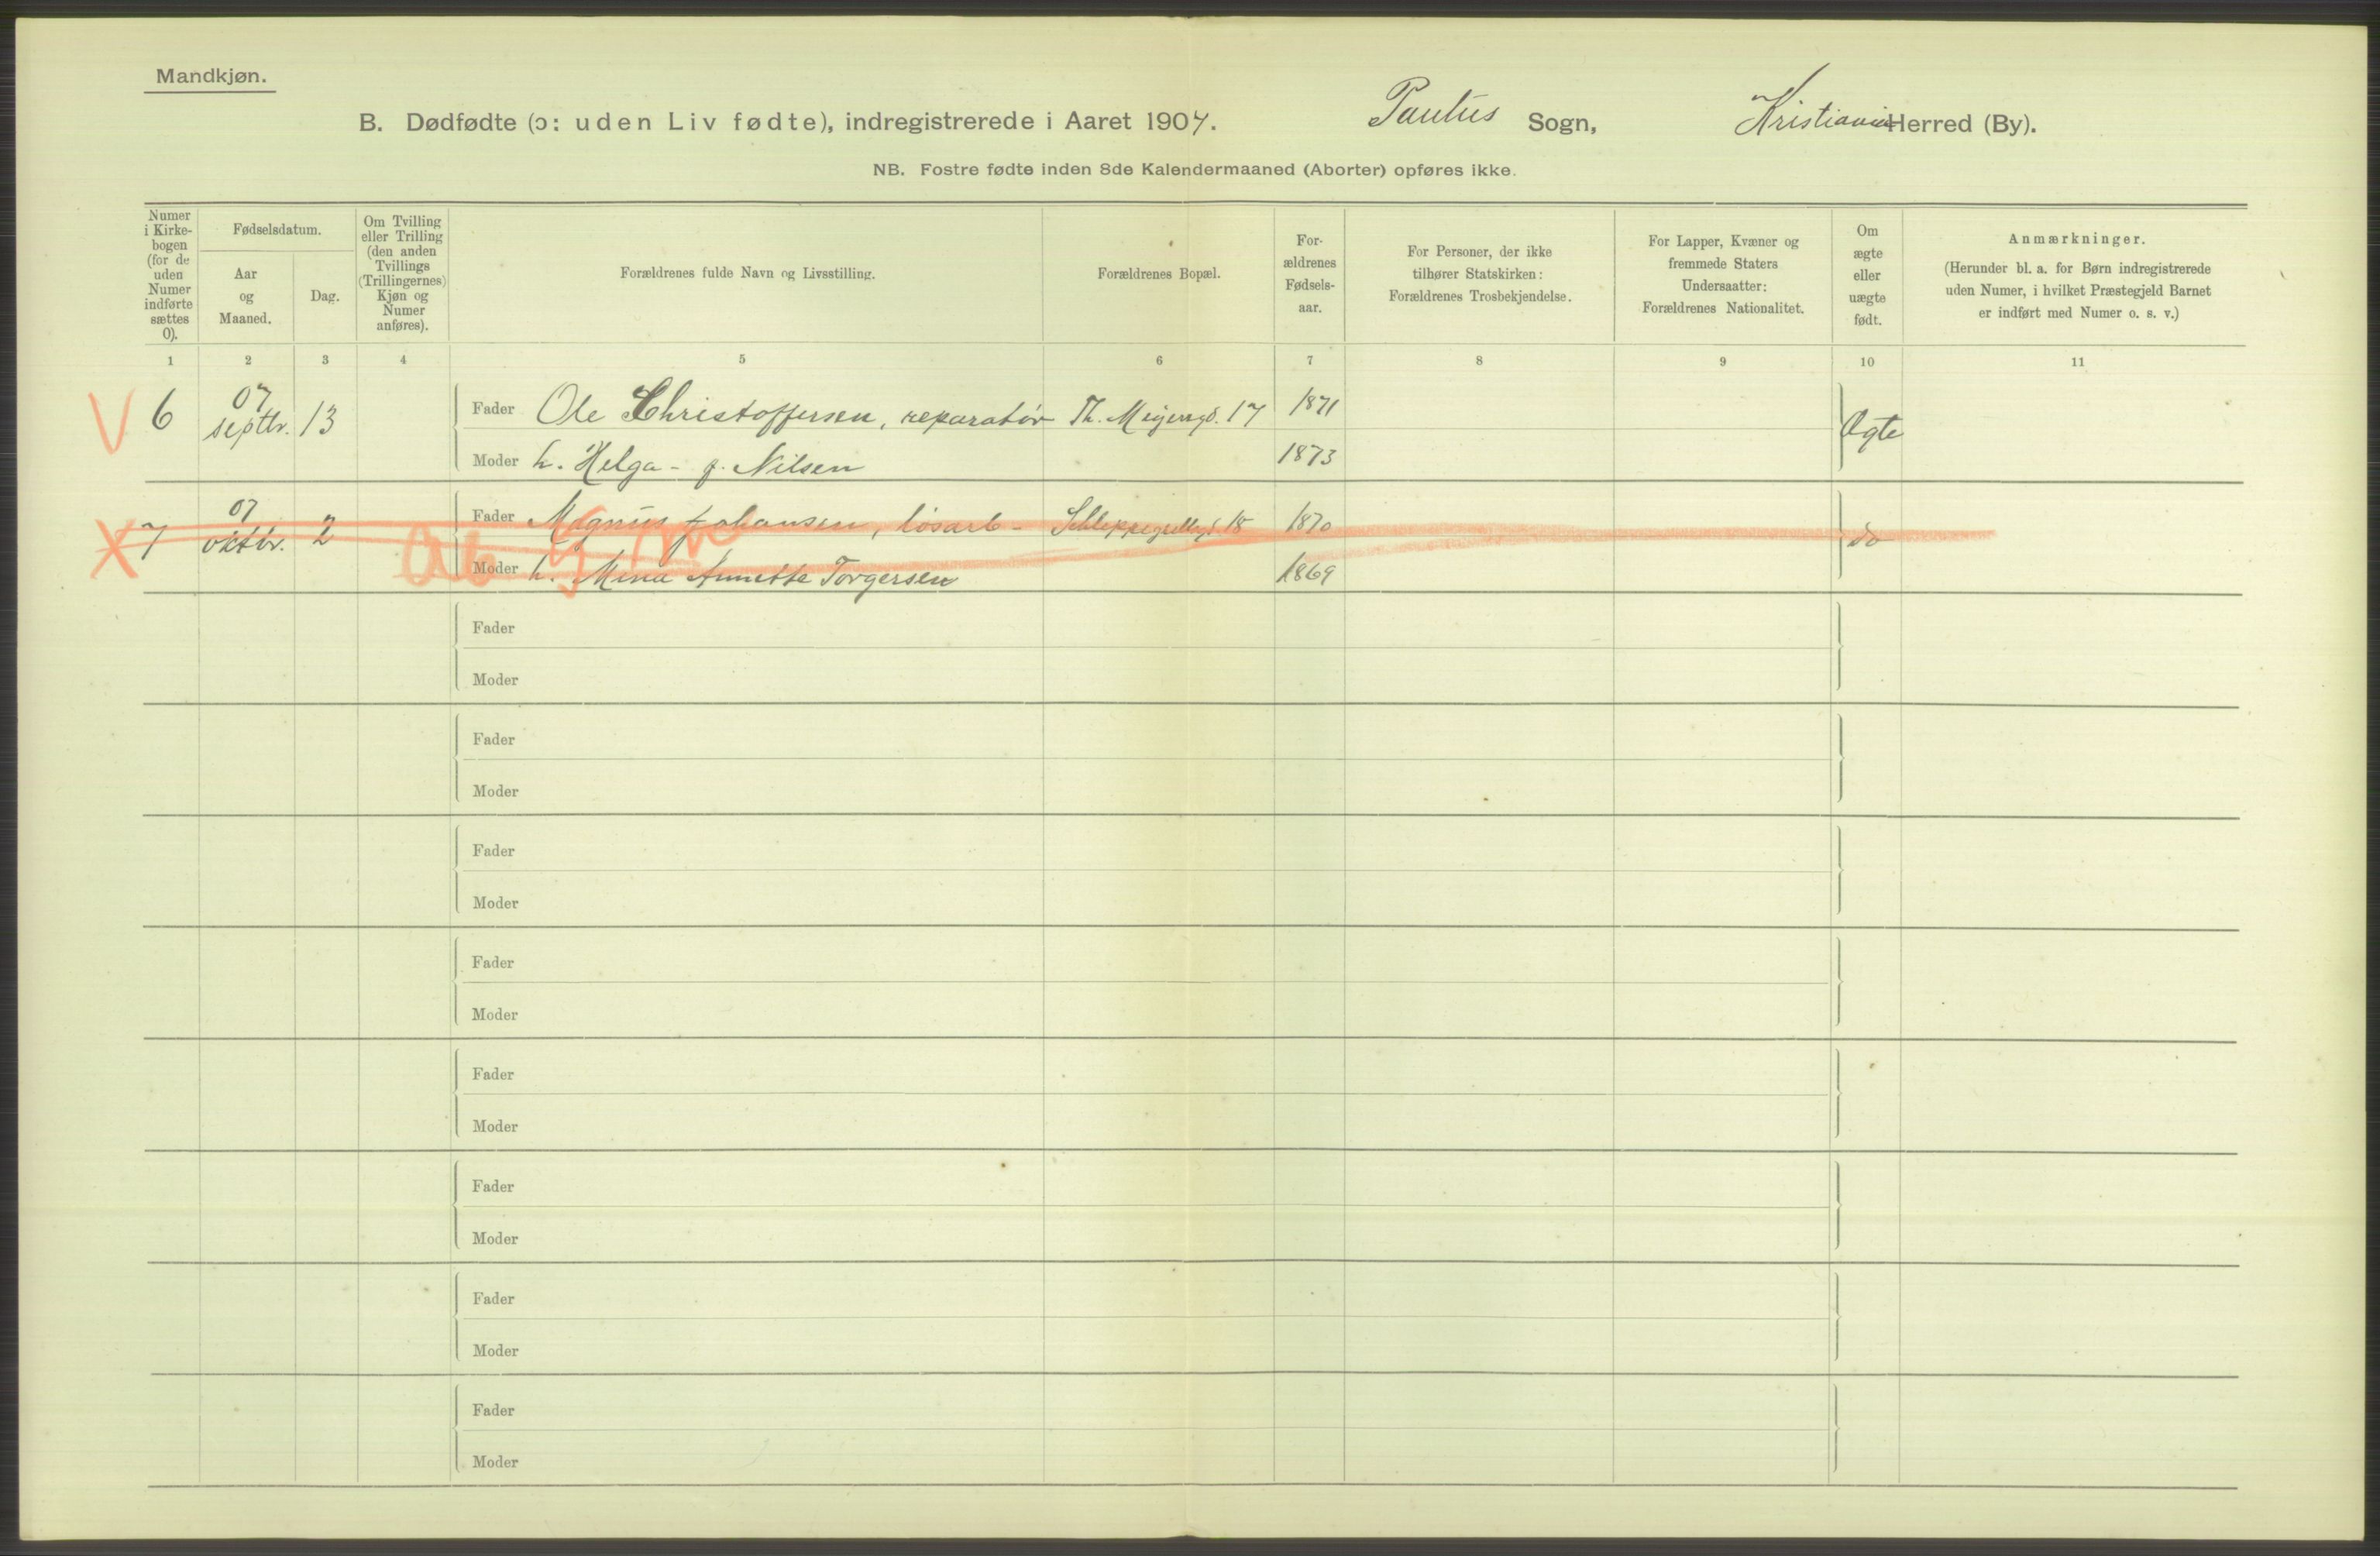 Mandkjøn.
B. Dødfødte (ɔ: uden Liv fødte), indregistrerede i Aaret 1907. Paulus Sogn, Kristiania Herred (By).
NB. Fostre fødte inden 8de Kalendermaaned (Aborter) opføres ikke.
Numer i Kirke-bogen (for de uden Numer indførte sættes 0).
Fødselsdatum.
Aar og Maaned.
Dag.
Om Tvilling eller Trilling (den anden Tvillings (Trillingernes) Kjøn og Numer anføres).
Forældrenes fulde Navn og Livsstilling.
Forældrenes Bopæl.
For-ældrenes Fødsels-aar.
For Personer, der ikke tilhører Statskirken: Forældrenes Trosbekjendelse.
For Lapper, Kvæner og fremmede Staters Undersaatter: Forældrenes Nationalitet.
Om ægte eller uægte født.
Anmærkninger.
(Herunder bl. a. for Børn indregistrerede uden Numer, i hvilket Præstegjeld Barnet er indført med Numer o. s. v.)
1 2 3 4 5 6 7 8 9 10 11
V 6 07 septbr. 13 Fader Ole Christoffersen, reparatør Th. Meyersgd. 17 1871 Ægte
Moder h. Helga - f. Nilsen 1873
X 7 07 oktbr. 2 Fader Magnus Johansen, løsarb - Schleppegrellsgd. 18 1870 do
Moder h. Mina Annette Torgersen 1869
Ab 5
Fader
Moder
Fader
Moder
Fader
Moder
Fader
Moder
Fader
Moder
Fader
Moder
Fader
Moder
Fader
Moder